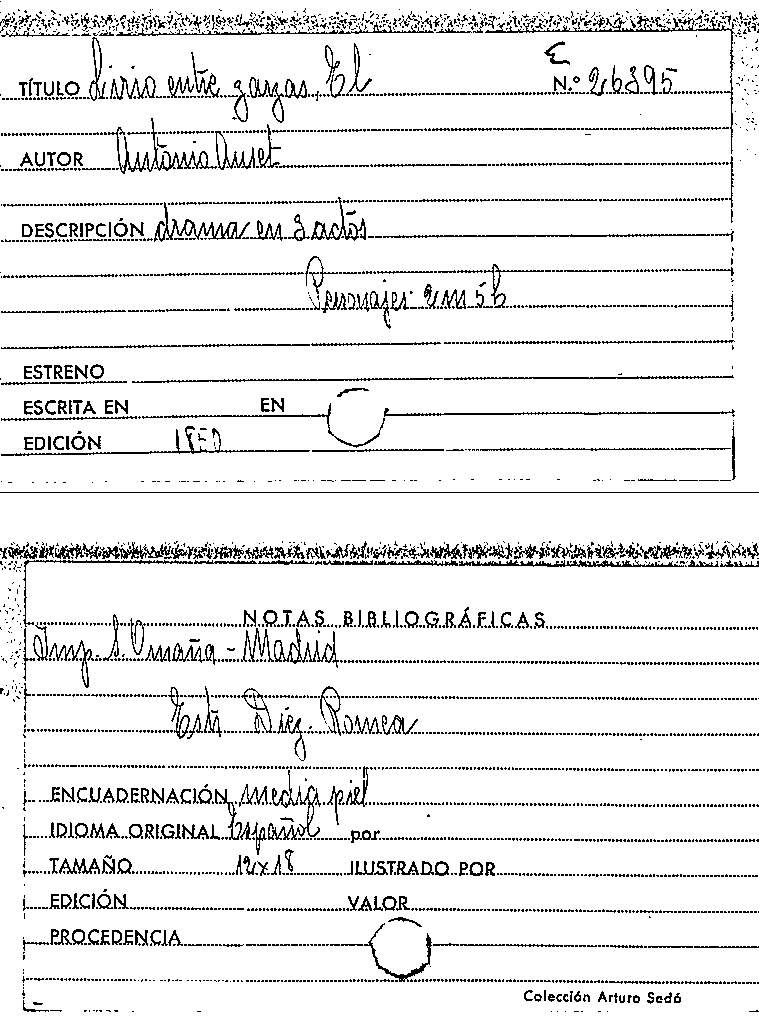 Σ
TÍTULO Lirio entre zarzas, El N.º 26895
AUTOR Antonio Auset
DESCRIPCIÓN drama en 3 actos
Personajes 2 m 5 h
ESTRENO
ESCRITA EN EN
EDICIÓN
NOTAS BIBLIOGRÁFICAS
Imp. S. Omaña - Madrid
Estr Díez. Romea
ENCUADERNACIÓN media piel
IDIOMA ORIGINAL Español por
TAMAÑO 12 x 18 ILUSTRADO POR
EDICIÓN VALOR
PROCEDENCIA
Colección Arturo Sedó